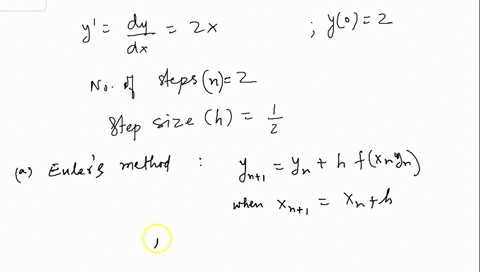 y' = dy/dx = 2x ; y(0) = 2
No. of steps (n) = 2
Step size (h) = 1/2
(a) Euler's method : y_{n+1} = y_n + h f(x_n y_n)
when x_{n+1} = x_n + h
,